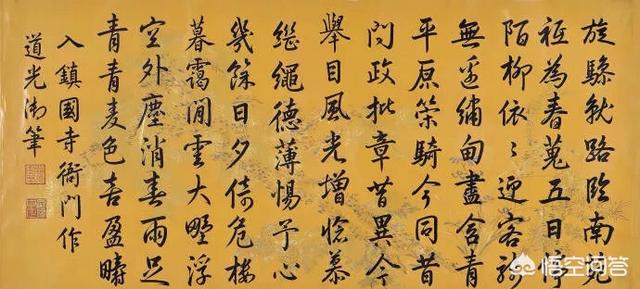 旋驂就路臨南苑
祗為春蒐五日停
陌柳依〻迎客綠
無邊繡甸盡含青
平原策騎今同昔
問政批章昔異今
舉目風光增愴慕
繼繩德薄惕予心
幾餘日夕倚危樓
暮靄閒雲大野浮
空外塵消春雨足
青青麥色喜盈疇
入鎮國寺衙門作
道光御筆
悟空问答